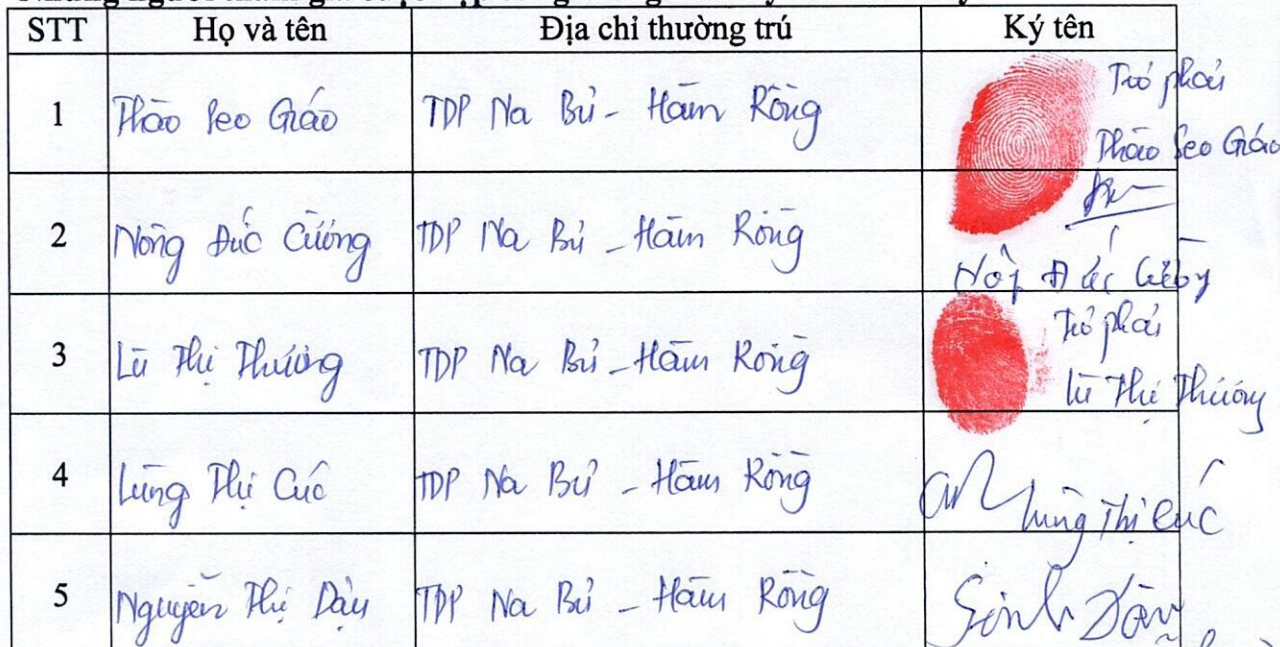 STT Họ và tên Địa chỉ thường trú Ký tên
1 Thào Seo Gráo TDP Na Bủ - Hàm Rồng Trỏ phải
Thào Seo Gráo
2 Nông Đức Cường TDP Na Bủ - Hàm Rồng
3 Lù Thị Thương TDP Na Bủ - Hàm Rồng Trỏ phải
Lù Thị Thương
4 Lùng Thị Cúc TDP Na Bủ - Hàm Rồng Lùng Thị Cúc
5 Nguyễn Thị Dậu TDP Na Bủ - Hàm Rồng